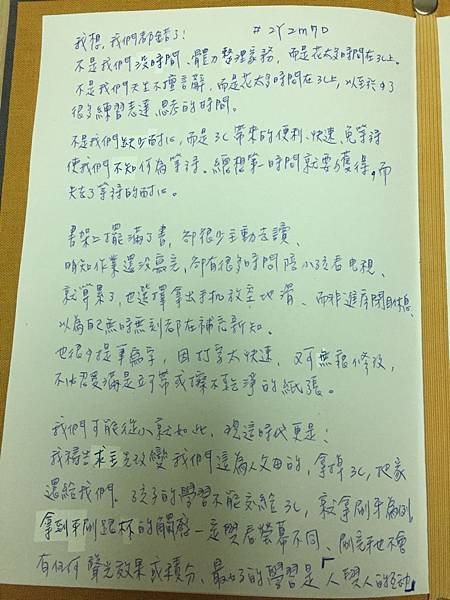 我想，我們都錯了！ #2Y2m7D
不是我們沒時間、體力整理家務，而是花太多時間在3C上。
不是我們天生不擅言辭，而是花太多時間在3C上，以至於少了
很多練習表達、思考的時間。
不是我們缺少耐心，而是3C帶來的便利、快速、免等待
使我們不知何為等待。總想第一時間就要獲得，而
失去了等待的耐心。
書架上擺滿了書，卻很少主動去讀、
明知作業還沒寫完，卻有很多時間陪小孩看電視、
就算累了，也選擇拿出手机放空地滑、而非進房閉目休息、
以為自己無時無刻都在補充新知。
也很少提筆寫字，因打字太快速，又可無痕修改，
不必習慣滿是立可帶或擦不乾淨的紙張。
我們可能從小就如此，現這時代更是！
我禱告求主先改變我們這為人父母的，拿掉3C，把家
還給我們。孩子的學習不能交給3C，就拿刷牙為例，
拿到牙刷跟杯的觸感一定與看螢幕不同、刷完牙也不會
有任何聲光效果或積分、最好的學習是「人與人的